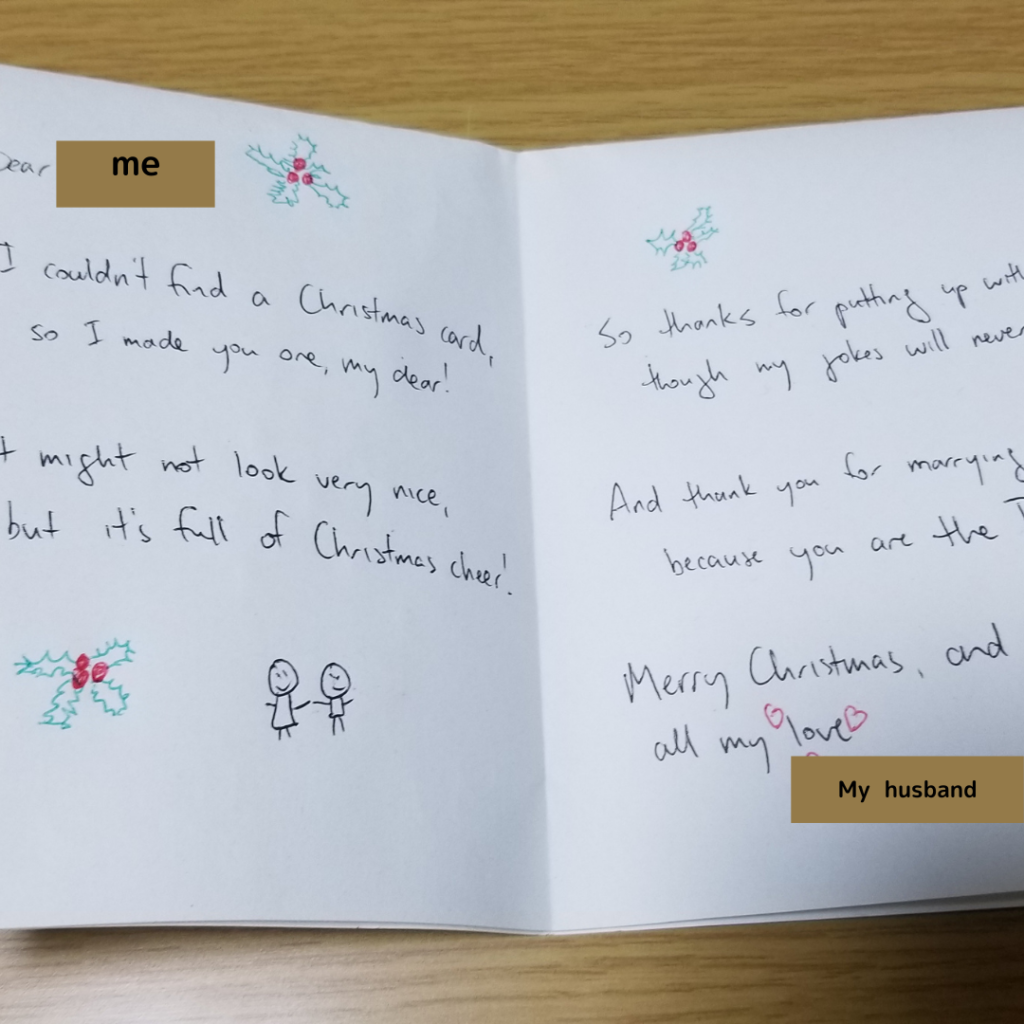 Dear me
I couldn't find a Christmas card,
so I made you one, my dear!
t might not look very nice,
but it's full of Christmas cheer!
So thanks for putting up with
though my jokes will never
And thank you for marrying
because you are the
Merry Christmas, and
all my love
My husband